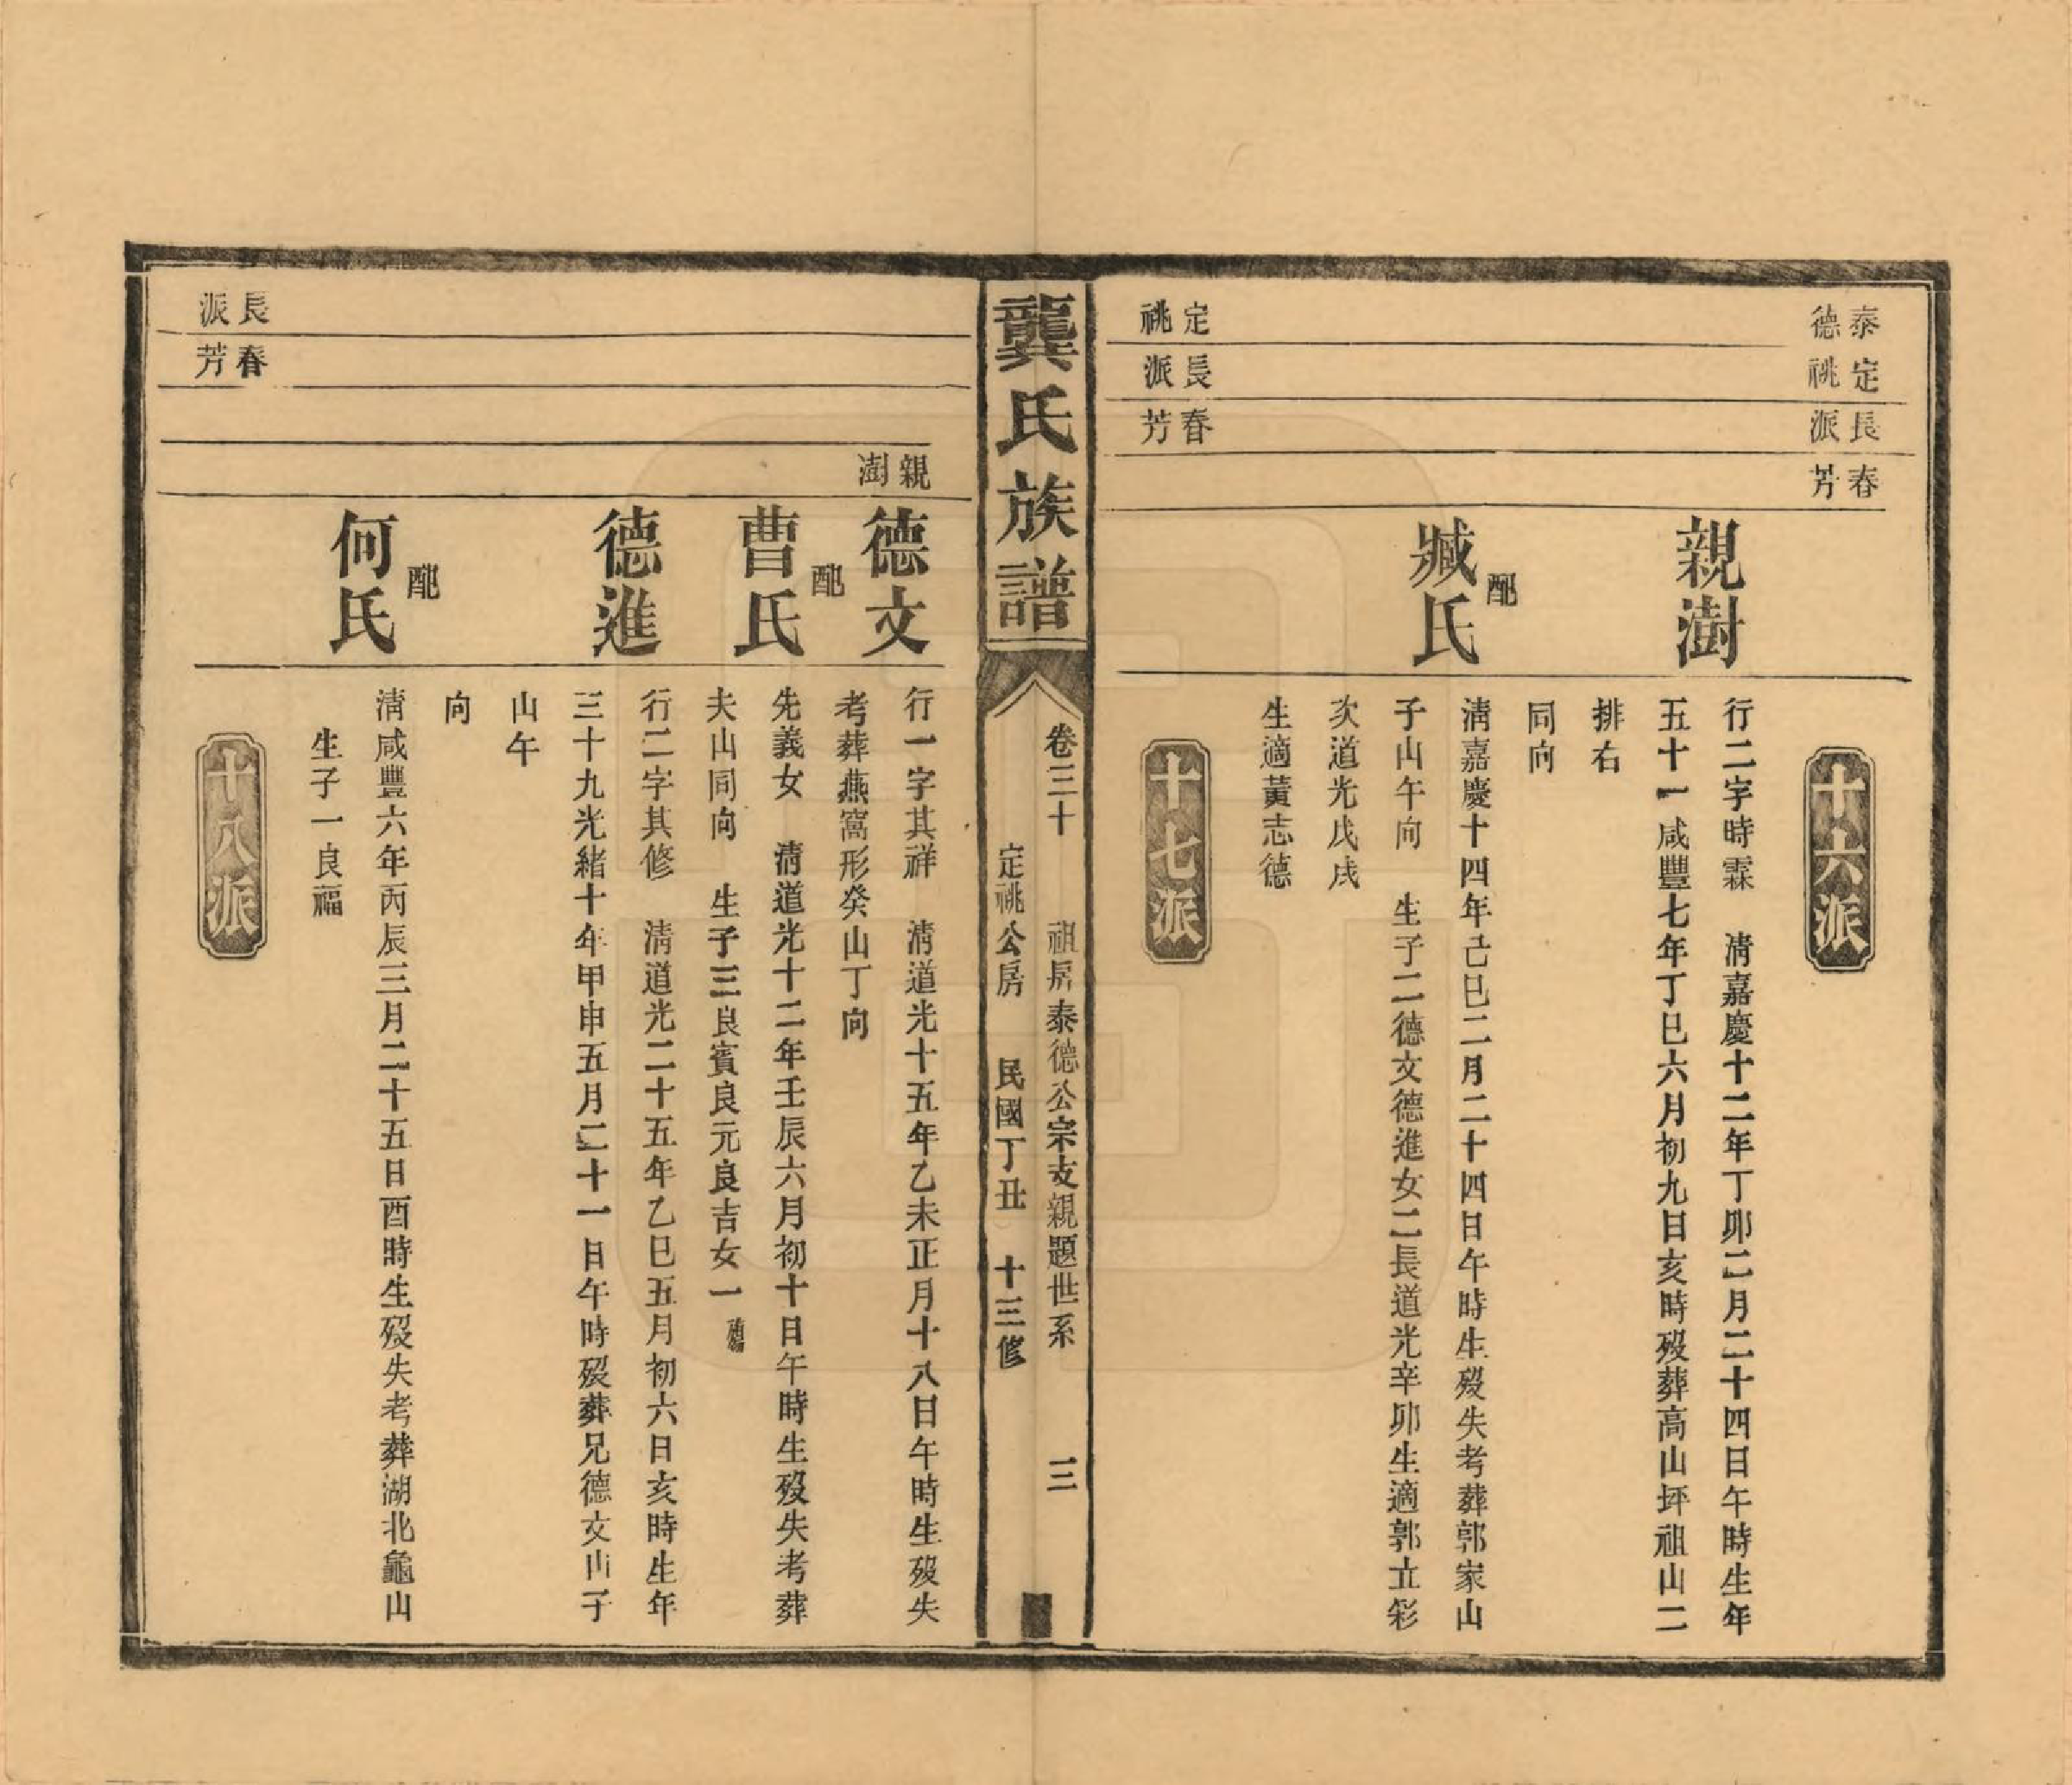 泰德
定祧
長派
春芳
十六派
親澍
行二字時霖　清嘉慶十二年丁卯二月二十四日午時生年
五十一咸豐七年丁巳六月初九日亥時歿葬高山坪祖山二
排右
同向
配
臧氏
清嘉慶十四年己巳二月二十四日午時生歿失考葬郭家山
子山午向　生子二德文德進女二長道光辛卯生適郭立彩
次道光戊戌
生適黃志德
定祧
長派
春芳
十七派
龔氏族譜
卷三十　祖房泰德公宗支親題世系　三
定祧公房　民國丁丑　十三修
親澍
德文
行一字其祥　清道光十五年乙未正月十八日午時生歿失
考葬燕窩形癸山丁向
配
曹氏
先義女　清道光十二年壬辰六月初十日午時生歿失考葬
夫山同向　生子三良賓良元良吉女一
德進
行二字其修　清道光二十五年乙巳五月初六日亥時生年
三十九光緒十年甲申五月二十一日午時歿葬兄德文山子
山午
向
配
何氏
清咸豐六年丙辰三月二十五日酉時生歿失考葬湖北龜山
生子一良福
長派
春芳
十八派